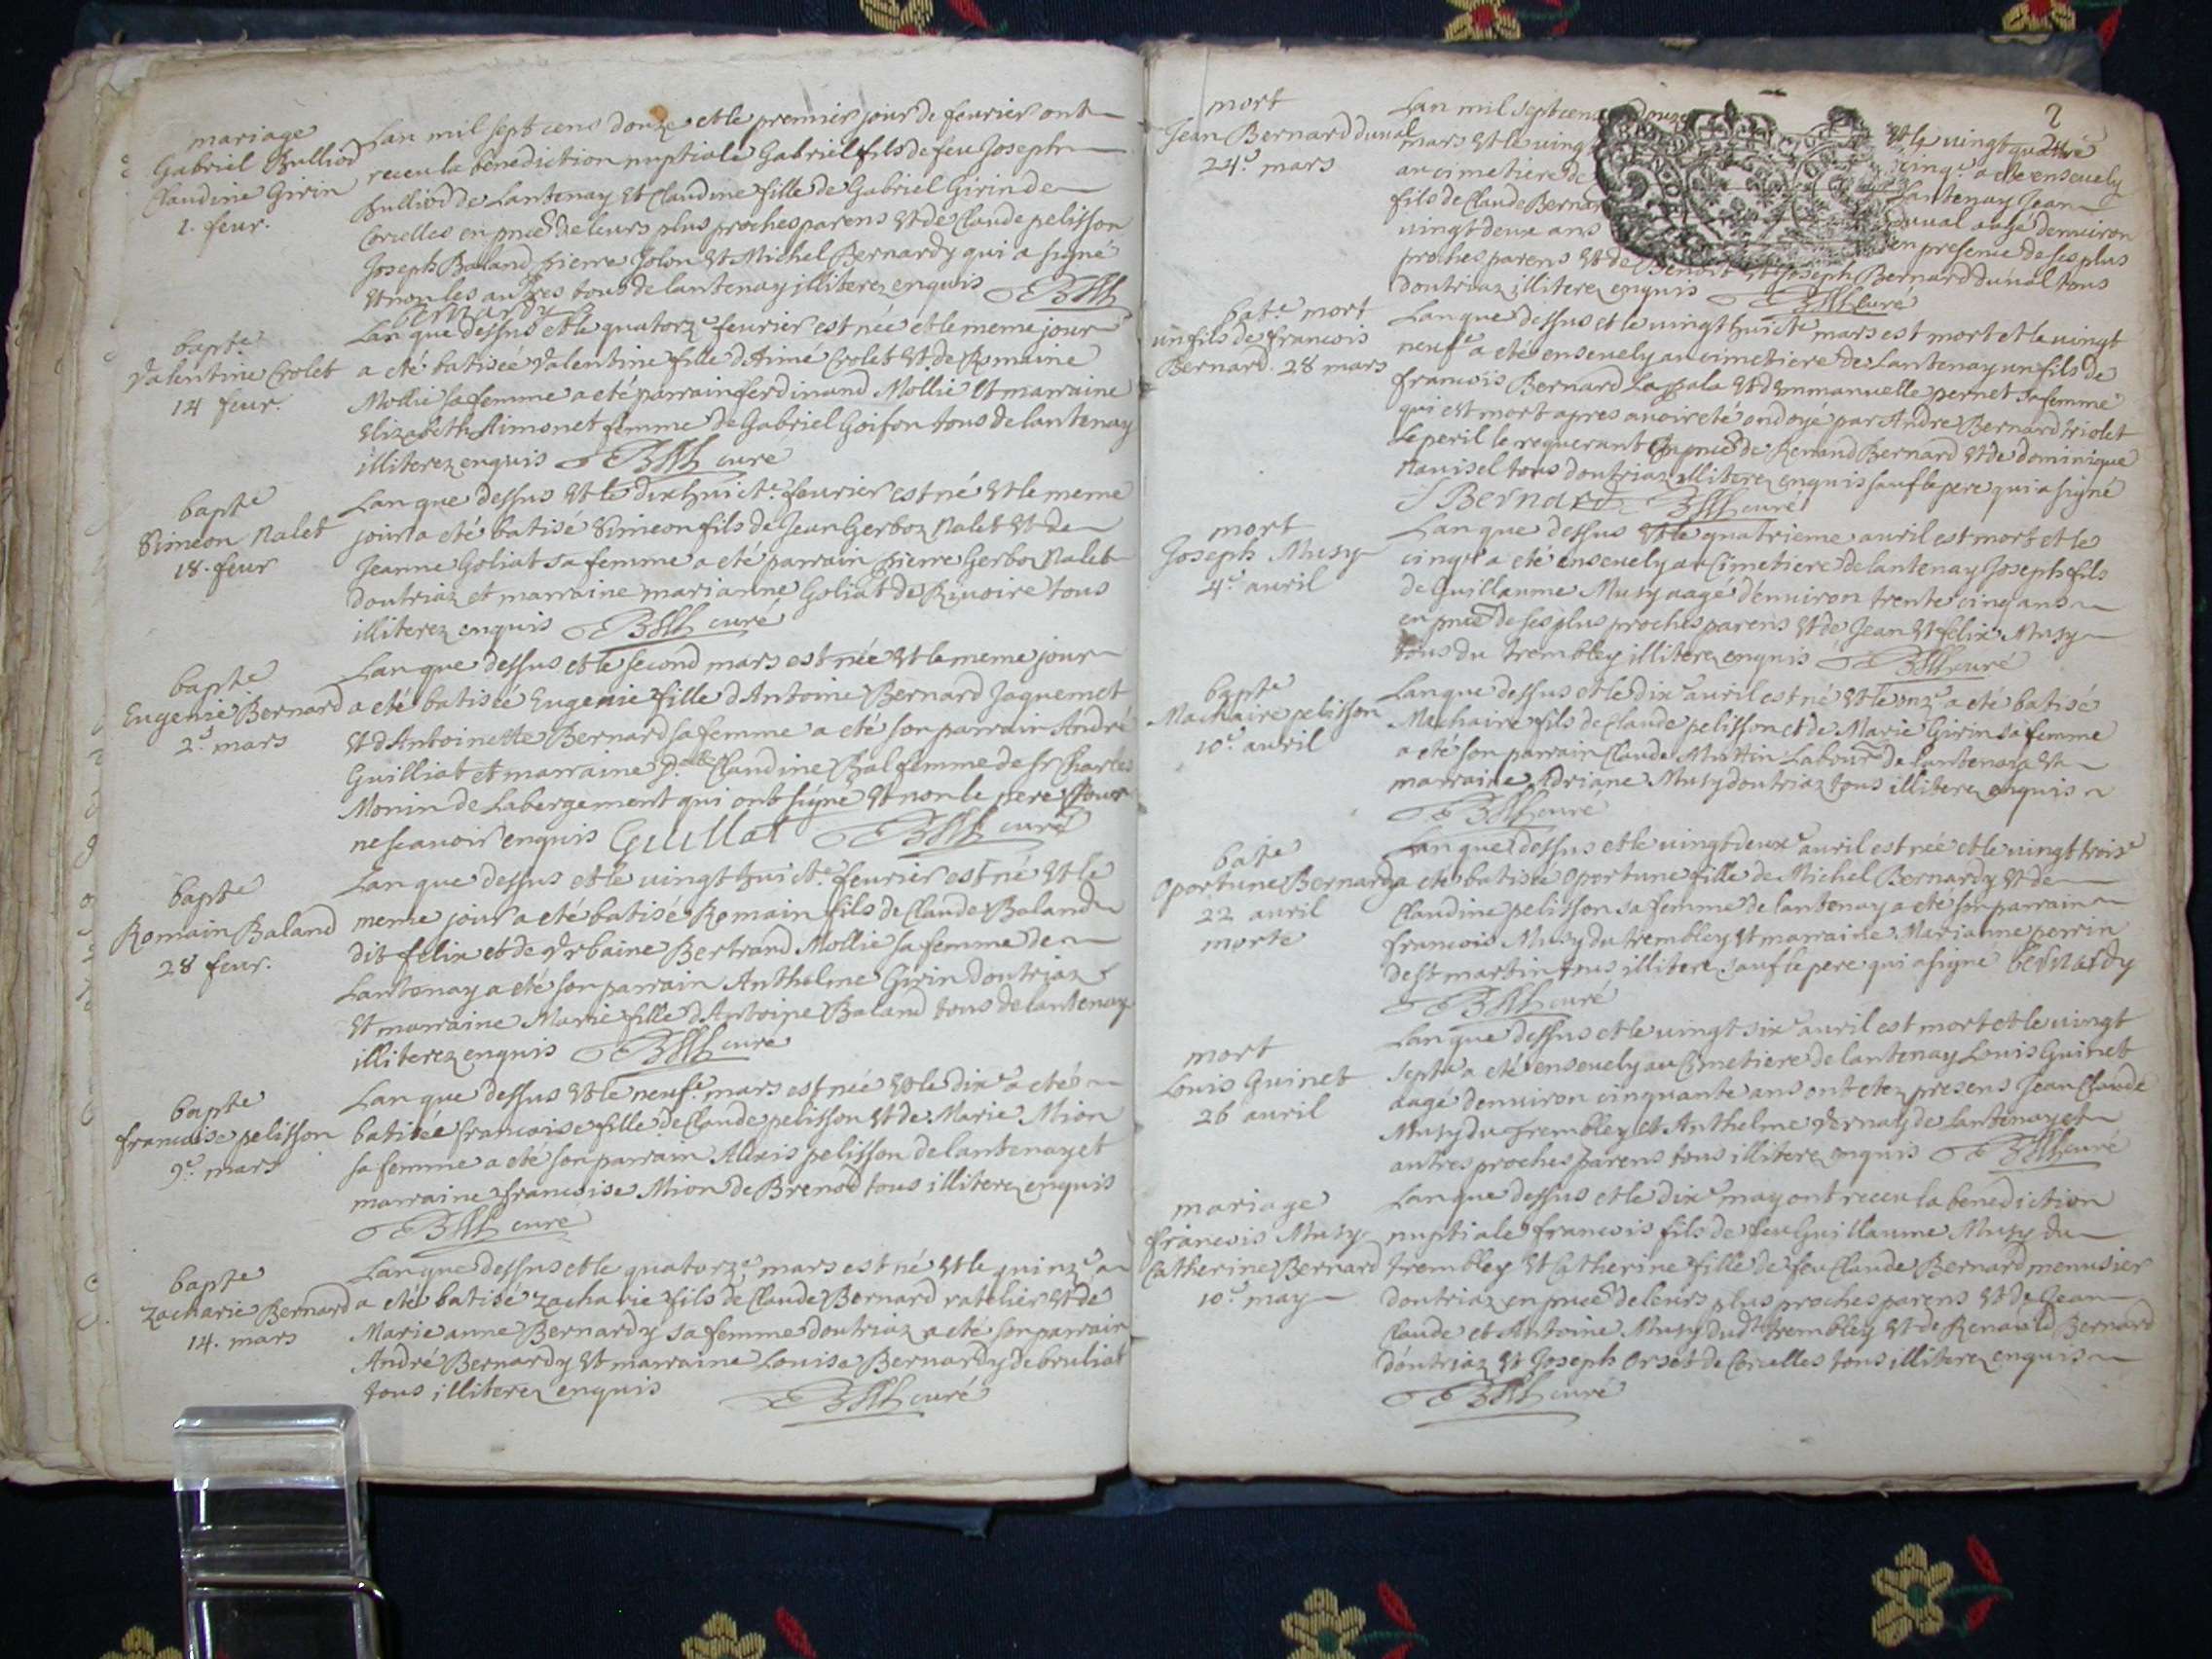 mariage
Gabriel Bulliod
Claudine Girin
1. feur.
Lan mil sept cens douze et le premier jour de feurier ont
receu la benediction nuptiale Gabriel fils de feu Joseph
Bulliod de Lantenay et Claudine fille de Gabriel Girin de
Corcelles en pnce de leurs plus proches parens et de Claude pelisson
Joseph Baland pierre Jolon et Michel Bernardy qui a signé
et non les autres tous de lantenay illiterez enquis
bernardy
bapte
Valentine Crolet
14 feur.
Lan que dessus et le quatorze feurier est née et le meme jour
a eté batisée Valentine fille dAimé Crolet et de Romaine
Mollie sa femme a eté parrain ferdinand Mollie et marraine
Elizabeth Aimonet femme de Gabriel Goifon tous de lantenay
illiterez enquis curé
bapte
Simeon Nalet
18. feur
Lan que dessus et le dix huicte. feurier est né et le meme
jour a eté batisé Simeon fils de Jean Gerboz Nalet et de
Jeanne Goliat sa femme a eté parrain pierre Gerboz Nalet
doutriaz et marraine marianne Goliat de Riuoire tous
illiterez enquis curé
bapte
Eugenie Bernard
2e mars
Lan que dessus et le second mars est née et le meme jour
a eté batisée Eugenie fille dAntoine Bernard Jaquemet
et dAntoinette Bernard sa femme a eté son parrain André
Guilliat et marraine Claudine Bal femme de sr Charles
Monin de Labergement qui ont signé et non le pere pour
ne scauoir enquis Guillat curé
bapte
Romain Baland
28 feur.
Lan que dessus et le uingt huicte. feurier est né et le
meme jour a eté batisé Romain fils de Claude Baland
dit felix et de Vrbaine Bertrand Mollie sa femme de
Lantenay a eté son parrain Anthelme Girin doutriaz
et marraine Marie fille dAntoine Baland tous de lantenay
illiterez enquis curé
bapte
francoise pelisson
9e. mars
Lan que dessus et le neufe. mars est née et le dixe a eté
batisée francoise fille de Claude pelisson et de Marie Mion
sa femme a eté son parrain Alexis pelisson de lantenay et
marraine francoise Mion de Brenod tous illiterez enquis
curé
bapte
Zacharie Bernard
14. mars
Lan que dessus et le quatorze mars est né et le quinze
a eté batisé Zacharie fils de Claude Bernard ratelier et de
Marie anne Bernardy sa femme doutriaz a eté son parrain
André Bernardy et marraine Louise Bernardy de bruliat
tous illiterez enquis curé
2
mort
Jean Bernard duual
24e. mars
Lan mil sept cens douze et le uingt quatre
mars et le uingt cinqe a eté enseuely
au cimetiére de Lantenay Jean
fils de Claude Bernard duual aagé denuiron
uingt deux ans en presence de ses plus
proches parens et de Benoit et Joseph Bernard duual tous
doutriaz illiterez enquis curé
bate. mort
un fils de francois
Bernard. 28 mars
Lan que dessus et le uingt huicte mars est mort et le uingt
neufe a eté enseuely au cimetiere de Lantenay un fils de
francois Bernard et dEmmanuelle pernet sa femme
qui est mort apres auoir eté ondoyé par Andre Bernard triolet
le peril le requerant en pnce de Renaud Bernard et de dominique
tous doutriaz illiterez enquis sauf le pere qui a signé
Bernard curé
mort
Joseph Musy
4e. auril
Lan que dessus et le quatrieme auril est mort et le
cinqe a eté enseuely au Cimetiere de lantenay Joseph fils
de Guillaume Musy aagé denuiron trente cinq ans
en pnce de ses plus proches parens et de Jean et felix Musy
tous du trembley illiterez enquis curé
bapte
Machaire pelisson
10e. auril
Lan que dessus et le dixe auril est né et le onze a eté batisé
Machaire fils de Claude pelisson et de Marie Girin sa femme
a eté son parrain Claude Labour de Lantenay et
marraine Adriane Musy doutriaz tous illiterez enquis
curé
bapte
Oportune Bernardy
22 auril
morte
Lan que dessus et le uingt deuxe auril est née et le uingt troise
a eté batisée Oportune fille de Michel Bernardy et de
Claudine pelisson sa femme de lantenay a eté son parrain
francois Musy du trembley et marraine Marianne perrin
de st martin tous illiterez sauf le pere qui a signé bernardy
curé
mort
Louis Guinet
26 auril
Lan que dessus et le uingt sixe auril est mort et le uingt
septe a eté enseuely au Cimetiere de lantenay Louis Guinet
aagé denuiron cinquante ans ont etez presens Jean Claude
Musy du trembley et Anthelme Vernay de Lantenay et
autres proches parens tous illiterez enquis curé
mariage
francois Musy
Catherine Bernard
10e. may
Lan que dessus et le dixe may ont receu la benediction
nuptiale francois fils de feu Guillaume Musy du
trembley et Catherine fille de feu Claude Bernard menusier
doutriaz en pnce de leurs plus proches parens et de Jean
Claude et Antoine Musy dudt trembley et de Renauld Bernard
doutriaz et Joseph Orset de Corcelles tous illiterez enquis
curé